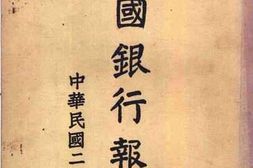 國銀行報
中華民國二